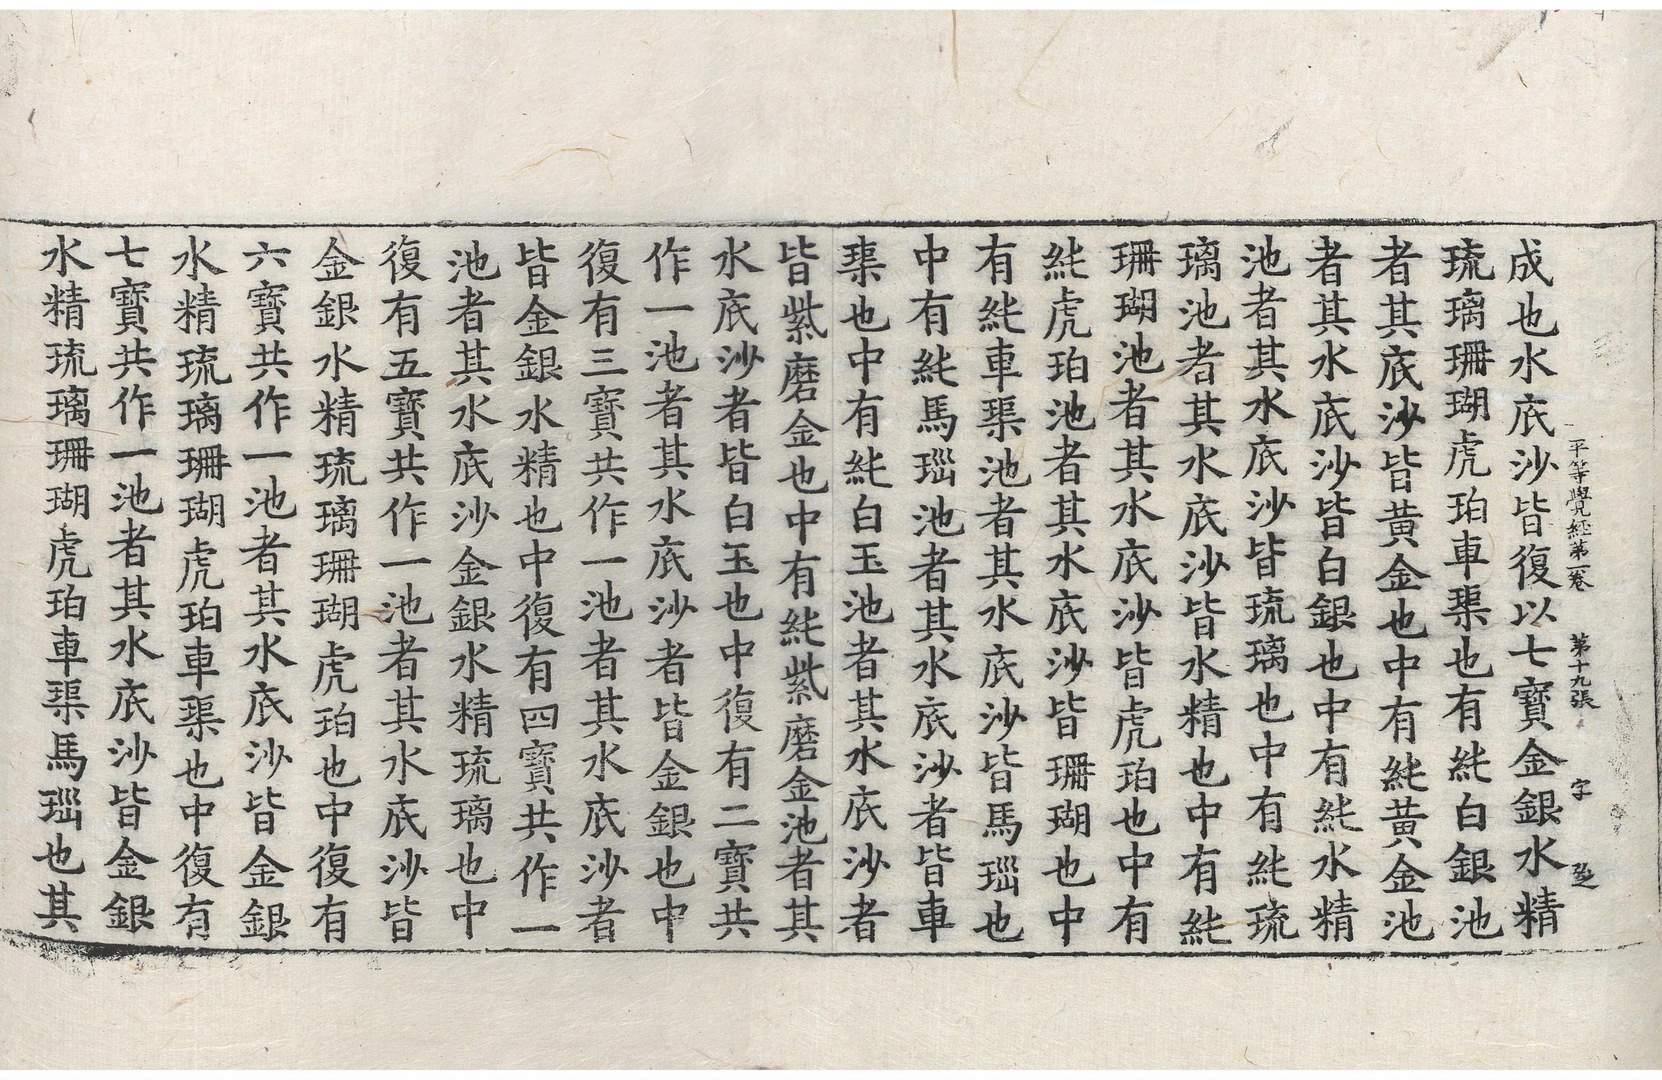 平等覺經第一卷 第十九張 字
成也水底沙皆復以七寶金銀水精
琉璃珊瑚虎珀車璖也有純白銀池
者其底沙皆黃金也中有純黃金池
者其水底沙皆白銀也中有純水精
池者其水底沙皆琉璃也中有純琉
璃池者其水底沙皆水精也中有純
珊瑚池者其水底沙皆虎珀也中有
純虎珀池者其水底沙皆珊瑚也中
有純車璖池者其水底沙皆馬瑙也
中有純馬瑙池者其水底沙者皆車
璖也中有純白玉池者其水底沙者
皆紫磨金也中有純紫磨金池者其
水底沙者皆白玉也中復有二寶共
作一池者其水底沙者皆金銀也中
復有三寶共作一池者其水底沙者
皆金銀水精也中復有四寶共作一
池者其水底沙金銀水精琉璃也中
復有五寶共作一池者其水底沙皆
金銀水精琉璃珊瑚虎珀也中復有
六寶共作一池者其水底沙皆金銀
水精琉璃珊瑚虎珀車璖也中復有
七寶共作一池者其水底沙皆金銀
水精琉璃珊瑚虎珀車璖馬瑙也其